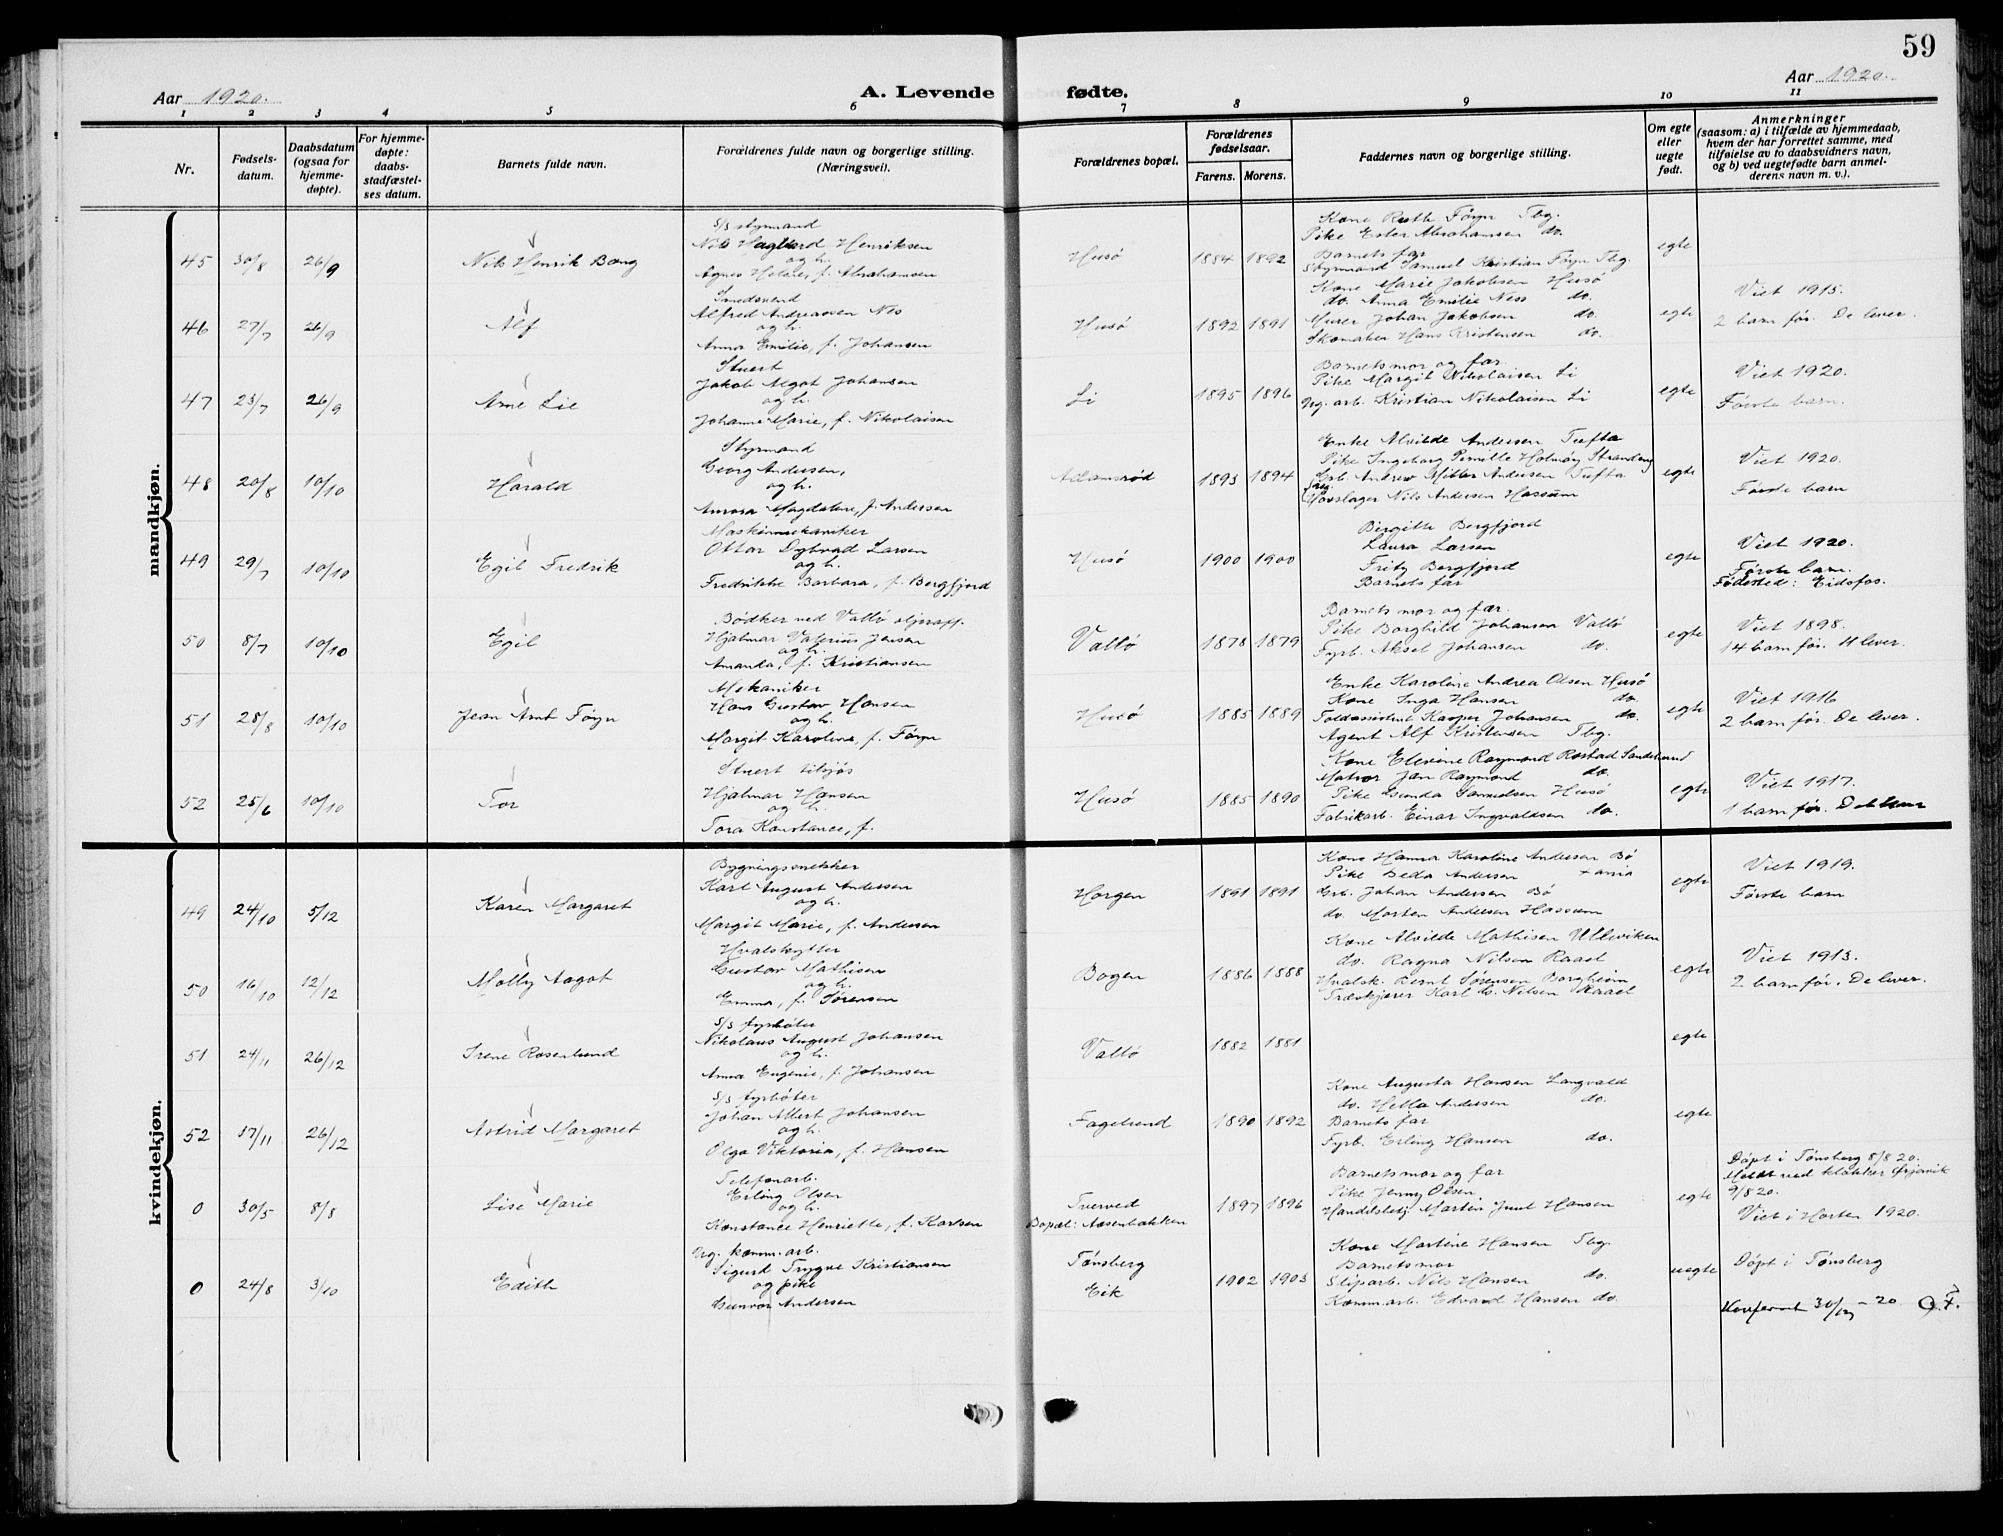 59
Aar 1920.
A. Levende fødte.
Aar 1920.
1 2 3 4 5 6 7 8 9 10 11
Nr.
Fødsels-
datum.
Daabsdatum
(ogsaa for
hjemme-
døpte).
For hjemme-
døpte:
daabs-
stadfæstel-
ses datum.
Barnets fulde navn.
Forældrenes fulde navn og borgerlige stilling.
(Næringsvei).
Forældrenes bopæl.
Forældrenes
fødselsaar.
Farens. Morens.
Faddernes navn og borgerlige stilling.
Om egte
eller
uegte
født.
Anmerkninger
(saasom: a) i tilfælde av hjemmedaab,
hvem der har forrettet samme, med
tilføielse av to daabsvidners navn,
og b) ved uegtefødte barn anmel-
derens navn m. v.).
mandkjøn.
45 30/8 26/9 Nils Henrik Bang
S/S styrmand
Nils Henriksen
og h.
Agnes Helene, f. Abrahamsen
Husö 1884 1892
Kone Ruth Föyn Tbg.
Pike Ester Abrahamsen do.
Barnets far
Styrmand Samuel Kristian Föyn Tbg.
egte
46 27/7 26/9 Alf
Smedsvend
Alfred Andreassen Nes
og h.
Anna Emilie, f. Johansen
Husö 1892 1891
Kone Marie Jakobsen Husö
do. Anna Emilie Ness do.
Murer Johan Jakobsen do.
Skomaker Hans Kristensen do.
egte
Viet 1915.
2 barn för. De lever.
47 23/7 26/9 Arne Lie
Stuert
Jakob Algot Johansen
og h.
Johanne Marie, f. Nikolaisen
Li 1895 1896
Barnets mor og far.
Pike Margit Nikolaisen Li
Ug. arb. Kristian Nikolaisen Li
egte
Viet 1920.
Förste barn.
48 20/8 10/10 Harald
Styrmand
Georg Andersen,
og h.
Aurora Magdalene, f. Andersen
Adamsröd 1893 1894
Enke Alvilde Andersen Tufta
Pike Ingeborg Pernille Holmöy Stranden
Andrew Andersen Tufta
Hovslager Nils Andersen Hassum
egte
Viet 1920.
Förste barn
49 29/7 10/10 Egil Fredrik
Maskinmekaniker
Ottar Dybvad Larsen
og h.
Fredrikke Barbara, f. Bergfjord
Husö 1900 1900
Birgitte Bergfjord
Laura Larsen
Fritz Bergfjord
Barnets far
egte
Viet 1920.
Förste barn.
Födested: Eidsfos.
50 8/7 10/10 Egil
Bödker ved Vallö oljeraff.
Hjalmar Valerius Jensen
og h.
Amanda, f. Kristiansen
Vallö 1878 1879
Barnets mor og far.
Pike Borghild Johansen Vallö
Fyrb. Aksel Johansen do.
egte
Viet 1898.
14 barn för. 11 lever.
51 28/8 10/10 Jean Arnt Föyn
Mekaniker
Hans Gustav Hansen
og h.
Margit Karoline, f. Föyn
Husö 1885 1889
Enke Karoline Andrea Olsen Husö
Kone Inga Hansen do.
Toldassistent Kasper Johansen do.
Agent Alf Kristensen Tbg.
egte
Viet 1916
2 barn för. De lever.
52 25/6 10/10 Tor
Stuert tilsjös
Hjalmar Hansen
og h.
Tora Konstance, f.
Husö 1885 1890
Kone Elevine Raymond Rostad Sandesund
Matros Jan Raymond do.
Pike Gunda Samuelsen Husö
Fabrikarb. Einar Ingvaldsen do.
egte
Viet 1917.
1 barn för. Det lever
kvindekjøn.
49 24/10 5/12 Karen Margaret
Bygningssnekker
Karl August Andersen
og h.
Margit Marie, f. Andersen
Horgen 1891 1891
Kone Hanna Karoline Andersen Bö
Pike Beda Andersen X ania
Grb. Johan Andersen Bö
do. Morten Andersen Hassum
egte
Viet 1919.
Förste barn
50 16/10 12/12 Molly Aagot
Hvalskytter
Gustav Mathisen
og h.
Emma, f. Sörensen
Bogen 1886 1888
Kone Alvilde Mathisen Ulleviken
do. Ragna Nilsen Raael
Hvalsk. Bernt Sörensen Borgheim
Træskjærer Karl do. Nilsen Raael
egte
Viet 1913.
2 barn för. De lever.
51 24/11 26/12 Irene Rosenlund
S/S fyrböter
Nikolaus August Johansen
og h.
Anna Eugenie, f. Johansen
Vallö 1882 1881
egte
52 17/11 26/12 Astrid Margaret
S/S fyrböter
Johan Albert Johansen
og h.
Olga Viktoria, f. Hansen
Fagelund 1890 1892
Kone Augusta Hansen Langvald
do. Hella Andersen do.
Barnets far
Fyrb. Erling Hansen do.
egte
0 30/5 8/8 Lise Marie
Telefonarb.
Erling Olsen
og h.
Konstance Henriette, f. Karlsen
Tverved
Bopæl: Aasenbakken
1897 1896
Barnets mor og far
Pike Jenny Olsen
Handelsbetj. Martin Juul Hansen
egte
Döpt i Tönsberg 8/8 20.
Meldt ved klokker Örjavik
9/8 20.
Viet i Horten 1920.
0 24/8 3/10 Edith
Ug. komm. arb.
Sigurd Trygve Kristiansen
og pike
Gunvor Andersen
Tönsberg
Eik
1902 1903
Kone Martine Hansen Tbg.
Barnets mor
Sliparb. Nils Hansen do.
Komm. arb. Edvard Hansen do.
uegte
Döpt i Tönsberg
Konferert 30/12 - 20 O. F.